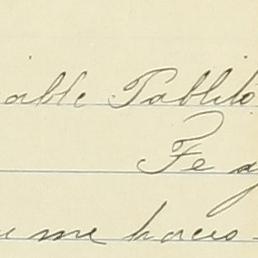 able Pablito
Fe a
u me haces